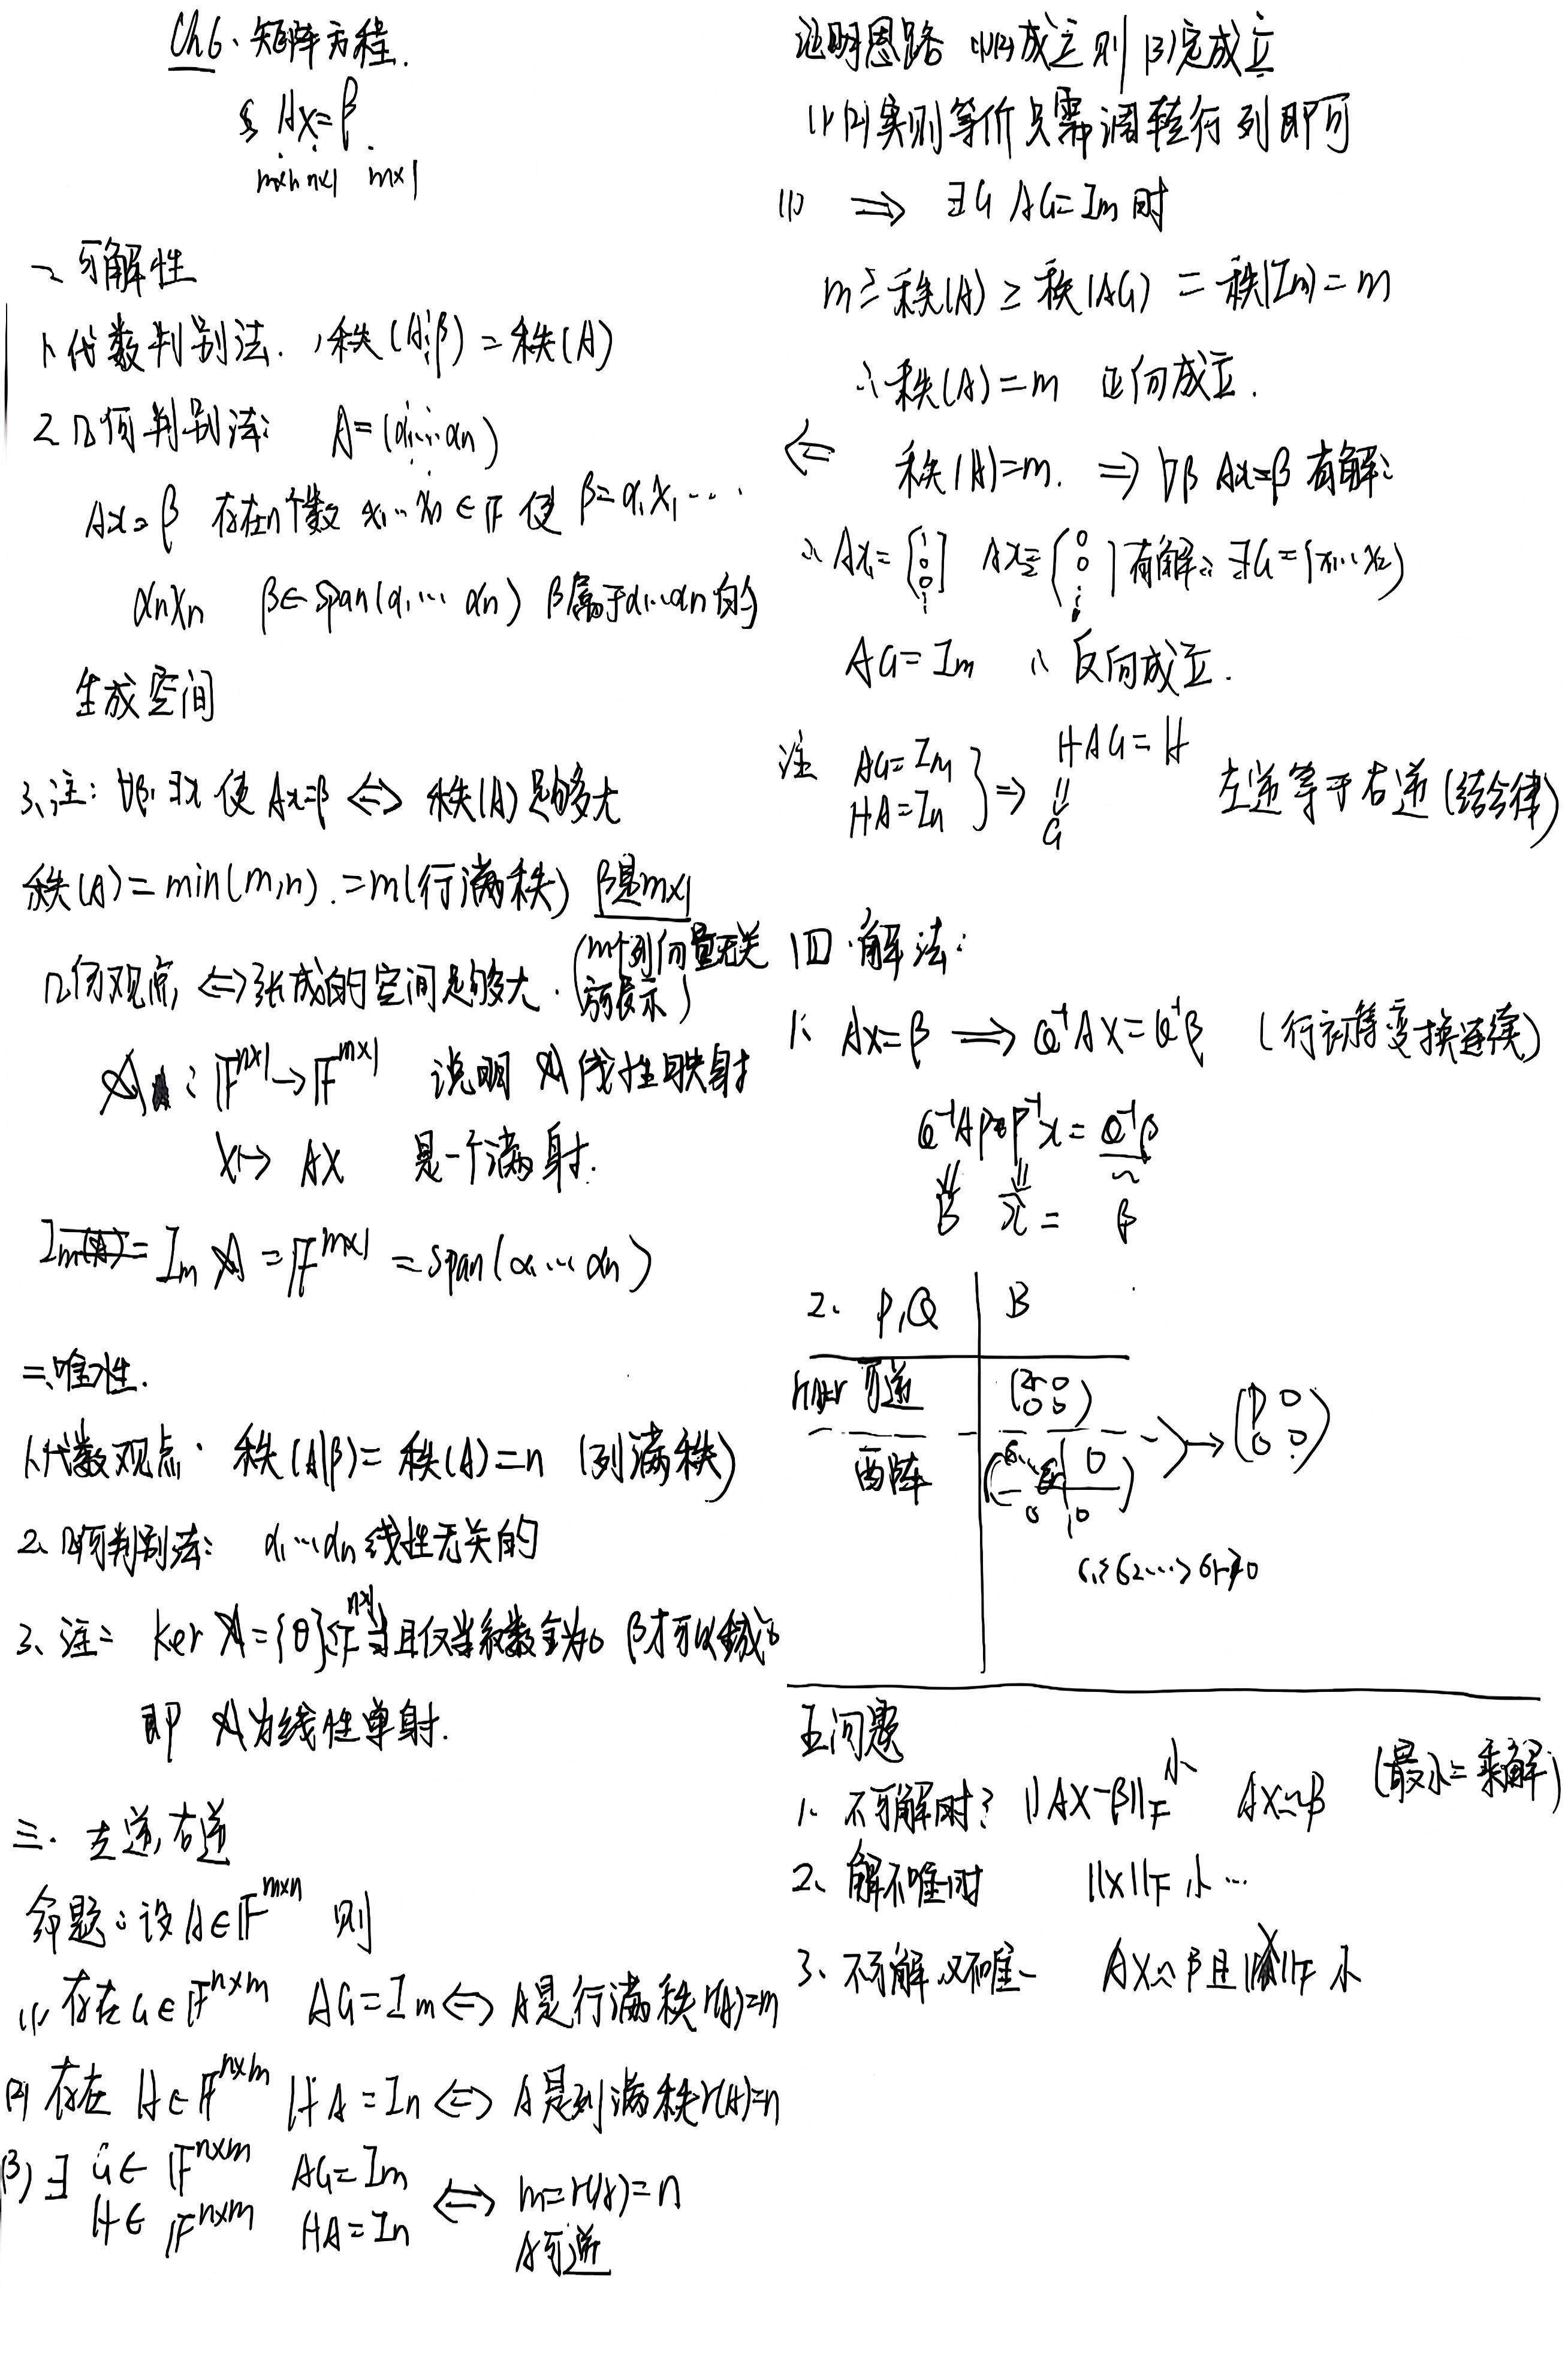 Ch6、矩阵方程.
§ Ax=β.
m×n n×1 m×1
一、可解性
1、代数判别法. 秩(A⋮β)=秩(A)
2、几何判别法: A=(α1…αn)
Ax=β 存在n个数 x1…xn∈F 使 β=α1x1…
αnxn β∈Span(α1…αn) β属于α1…αn的
生成空间
3、注: ∀β,∃x 使 Ax=β ⇔ 秩(A)足够大
秩(A)=min(m,n).=m(行满秩) β是m×1
几何观点, ⇔张成的空间足够大. (m个列向量无关
方可表示)
𝒜: F^{n×1}→F^{m×1} 说明 𝒜 线性映射
x↦ Ax 是一个满射.
Im 𝒜 =F^{m×1} =Span(α1…αn)
二、唯一性.
1、代数观点. 秩(A|β)=秩(A)=n (列满秩)
2、几何判别法: α1…αn线性无关的
3、注: Ker 𝒜={θ}⊆F^{n×1} 当且仅当系数全为0 β才可以
即 𝒜为线性单射.
三. 左逆,右逆
命题:设A∈F^{m×n} 则
(1) 存在G∈F^{n×m} AG=Im⇔ A是行满秩r(A)=m
(2) 存在 H∈F^{n×m} HA=In⇔ A是列满秩r(A)=n
(3) ∃ G∈F^{n×m} AG=Im
H∈F^{n×m} HA=In ⇔ m=r(A)=n
A可逆
证明思路 (1)(2)成立则(3)定成立
(1)(2)实则等价只需调转行列即可
(1) ⇒ ∃G AG=Im时
m≥秩(A)≥秩(AG)=秩(Im)=m
∴秩(A)=m 正向成立.
⇐ 秩(A)=m. ⇒∀β Ax=β有解.
∴Ax1=[1 0 0 ⋮] Ax2=(0 0 ⋮)有解∴∃G=(x1…x2)
AG=Im ∴反向成立.
注 AG=Im
HA=In }⇒ HAG=H
⇓
G
左逆等于右逆(结合律)
四.解法:
1、Ax=β ⇒ Q⁻¹Ax=Q⁻¹β (行初等变换连续)
Q⁻¹APP⁻¹x=Q⁻¹β
B x̃= β̃
2、P,Q | B
r(A)=r 可逆 (Ir 0 0 0)
酉阵 (σ1…σr 0 0 0) → (D 0 0 0)
σ1≥σ2…≥σr>0
五问题
1、不可解时? ||AX-β||F小 AX≈β (最小二乘解)
2、解不唯一时 ||X||F小…
3、不可解又不唯一 AX≈β且||X||F 小